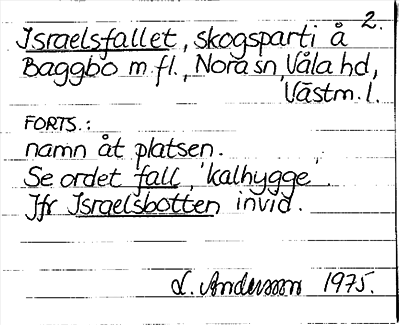 2.
Israelsfallet, skogsparti å
Baggbo m.fl., Nora sn, Våla hd,
Västm. l.
FORTS.:
namn åt platsen.
Se ordet fall, 'kalhygge'.
Jfr Israelsbotten invid.
L. Andersson 1975.